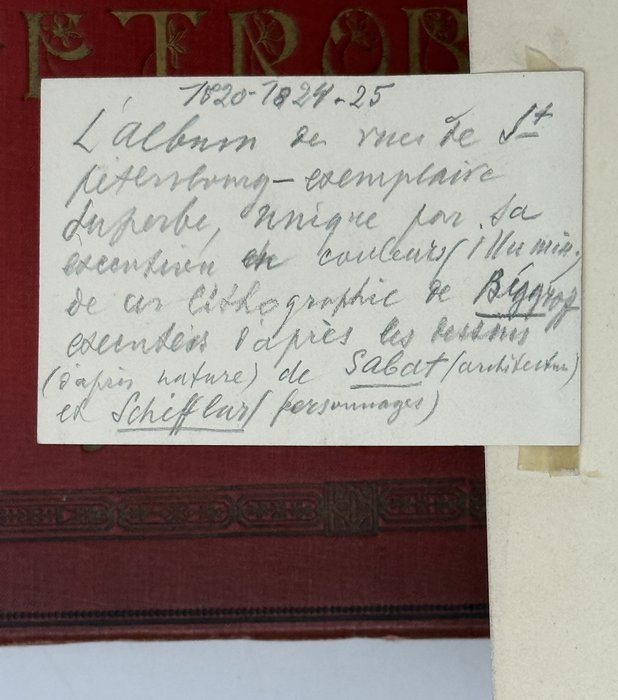 PETROB
1820-1824-25
L'album de vues de St
Petersbourg - exemplaire
superbe, unique par sa
execution en couleurs (illumin.
de ces lithographie de Béggrof
executées d'après les dessins
(d'après nature) de Sabat (architecture)
et Schifflar (personnages)